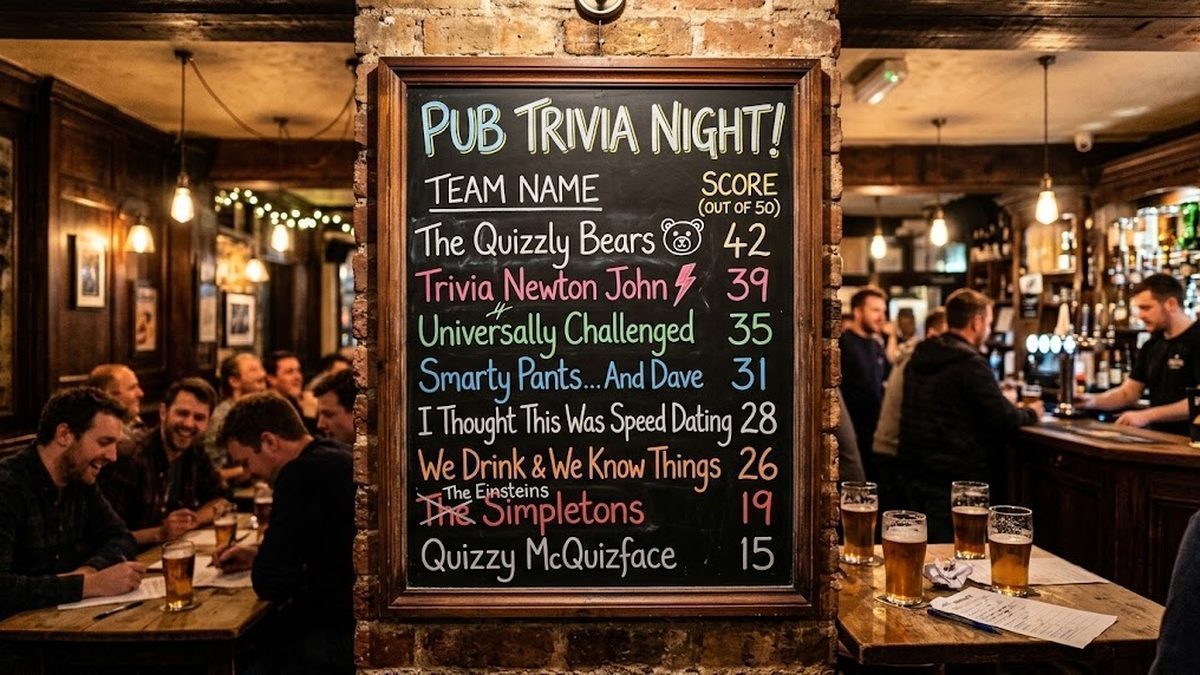 PUB TRIVIA NIGHT!
TEAM NAME SCORE
(OUT OF 50)
The Quizzly Bears 42
Trivia Newton John 39
Universally Challenged 35
Smarty Pants...And Dave 31
I Thought This Was Speed Dating 28
We Drink & We Know Things 26
The Einsteins
The Simpletons 19
Quizzy McQuizface 15